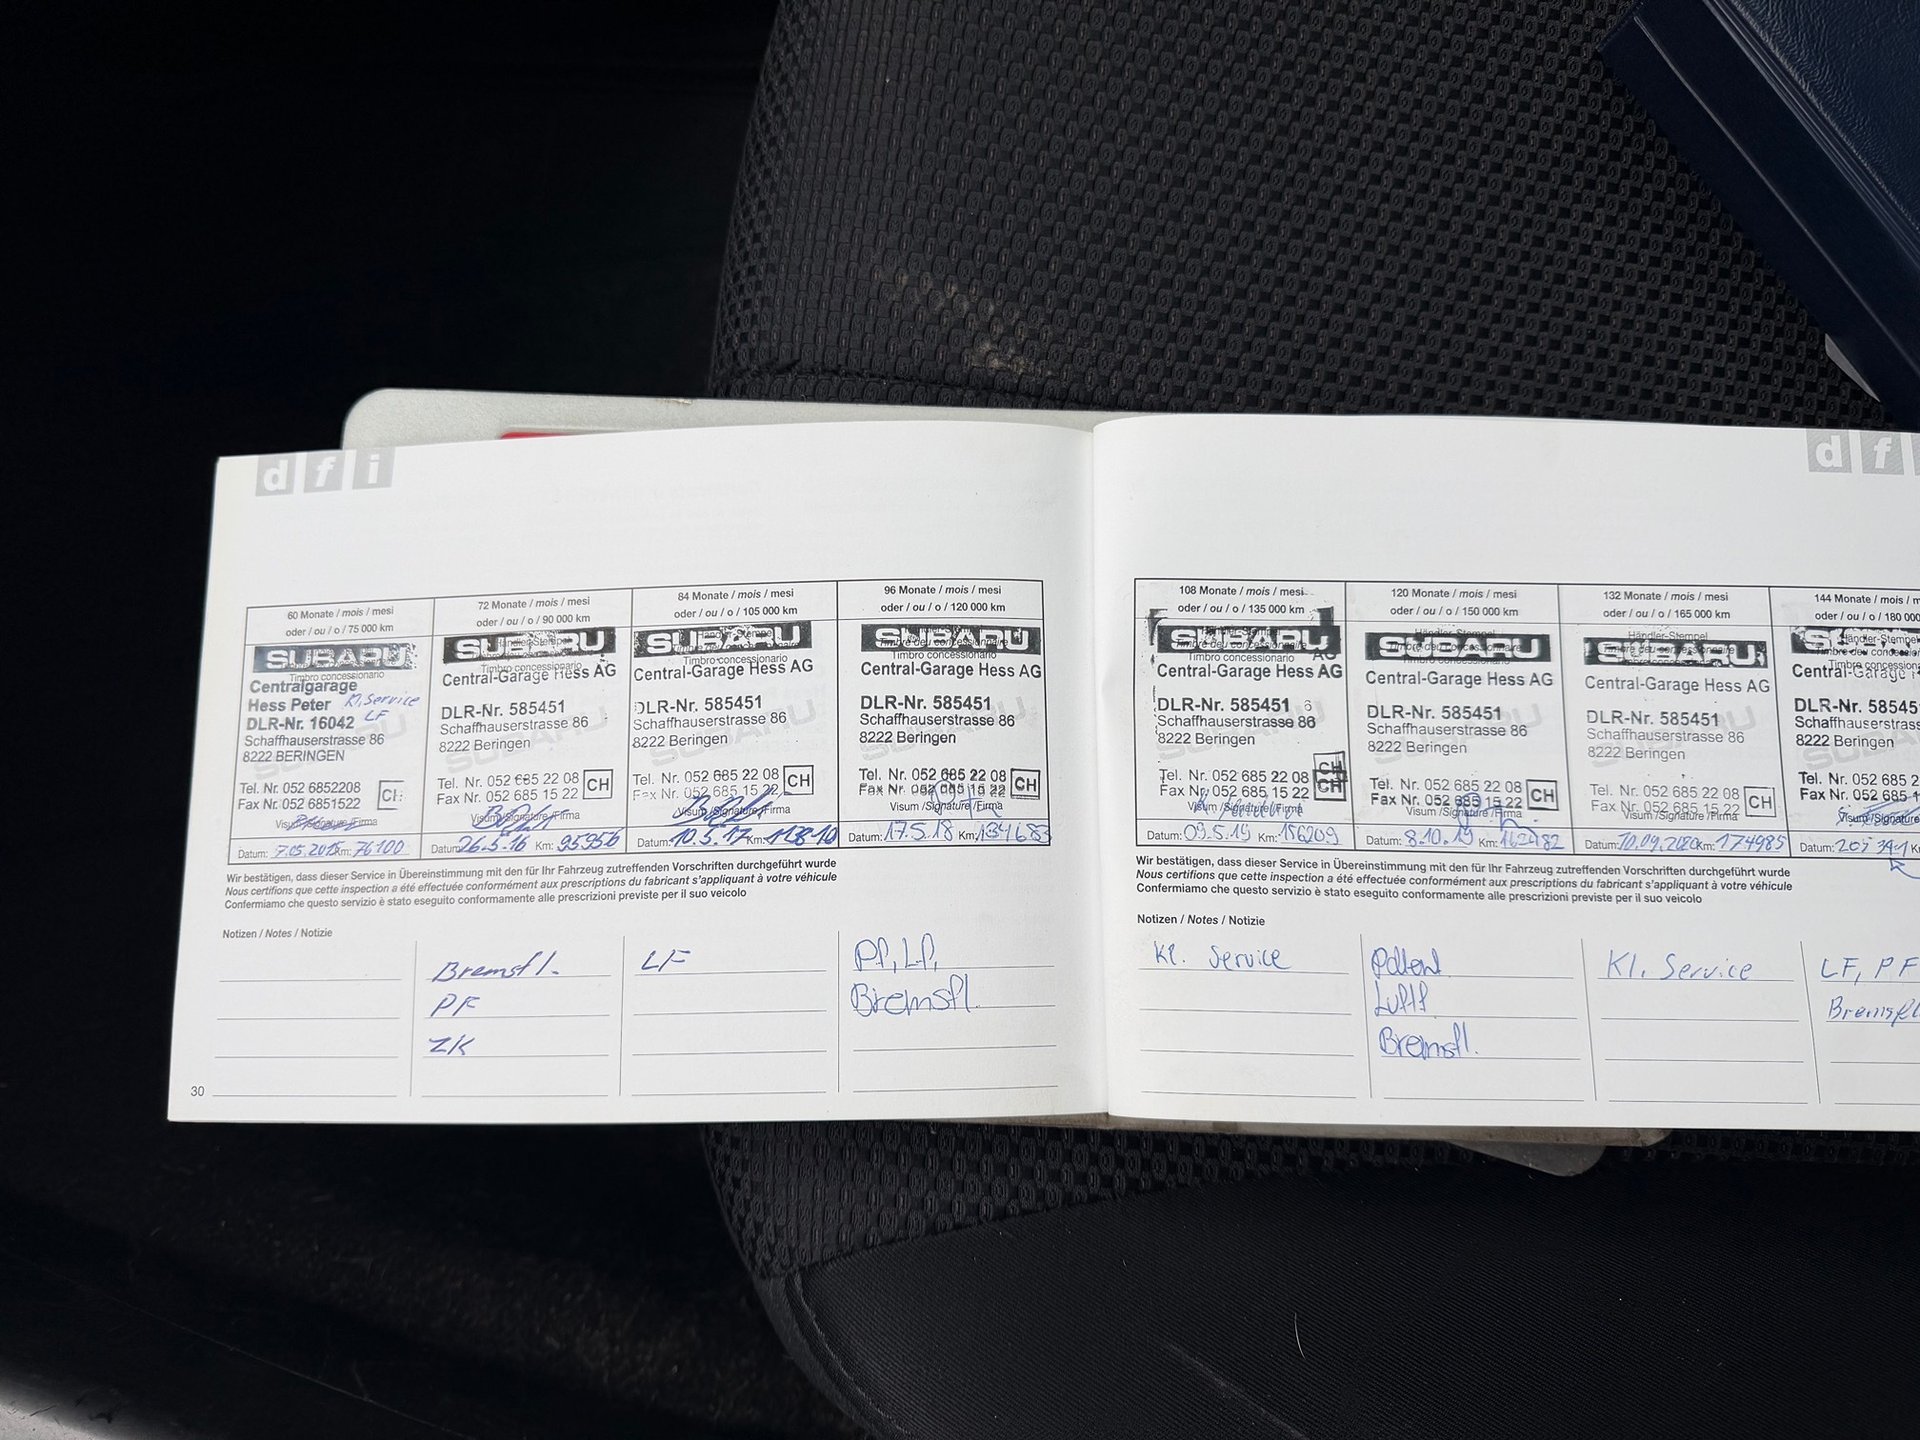 d f i
60 Monate / mois / mesi
oder / ou / o / 75 000 km
SUBARU
Timbro concessionario
Centralgarage
Hess Peter Kl. Service
DLR-Nr. 16042 LF
Schaffhauserstrasse 86
8222 BERINGEN
Tel. Nr. 052 6852208
Fax Nr. 052 6851522 CH
Visum/Signature/Firma
Datum: 7.05.2015 Km: 76100
72 Monate / mois / mesi
oder / ou / o / 90 000 km
Händler-Stempel
SUBARU
Timbro concessionario
Central-Garage Hess AG
DLR-Nr. 585451
Schaffhauserstrasse 86
8222 Beringen
Tel. Nr. 052 685 22 08
Fax Nr. 052 685 15 22 CH
Visum/Signature/Firma
Datum: 26.5.16 Km: 95956
84 Monate / mois / mesi
oder / ou / o / 105 000 km
SUBARU
Timbro concessionario
Central-Garage Hess AG
DLR-Nr. 585451
Schaffhauserstrasse 86
8222 Beringen
Tel. Nr. 052 685 22 08
Fax Nr. 052 685 15 22 CH
Visum/Signature/Firma
Datum: 10.5.17 Km:
96 Monate / mois / mesi
oder / ou / o / 120 000 km
SUBARU
Timbro concessionario
Central-Garage Hess AG
DLR-Nr. 585451
Schaffhauserstrasse 86
8222 Beringen
Tel. Nr. 052 685 22 08
Fax Nr. 052 685 15 22 CH
Visum /Signature /Firma
Datum: 17.5.18 Km: 134683
Wir bestätigen, dass dieser Service in Übereinstimmung mit den für Ihr Fahrzeug zutreffenden Vorschriften durchgeführt wurde
Nous certifions que cette inspection a été effectuée conformément aux prescriptions du fabricant s'appliquant à votre véhicule
Confermiamo che questo servizio è stato eseguito conformamente alle prescrizioni previste per il suo veicolo
Notizen / Notes / Notizie
Bremsfl.
PF
ZK
LF
Pf, Lf,
Bremsfl.
30
d f
108 Monate / mois / mesi
oder / ou / o / 135 000 km
SUBARU
Timbro concessionario
Central-Garage Hess AG
DLR-Nr. 585451
Schaffhauserstrasse 86
8222 Beringen
Tel. Nr. 052 685 22 08 CH
Fax Nr. 052 685 15 22 CH
Visum/Signature/Firma
Datum: 09.5.19 Km: 156209
120 Monate / mois / mesi
oder / ou / o / 150 000 km
Händler-Stempel
SUBARU
Timbro concessionario
Central-Garage Hess AG
DLR-Nr. 585451
Schaffhauserstrasse 86
8222 Beringen
Tel. Nr. 052 685 22 08
Fax Nr. 052 685 15 22 CH
Visum /Signature /Firma
Datum: 8.10.19 Km:
132 Monate / mois / mesi
oder / ou / o / 165 000 km
Händler-Stempel
SUBARU
Timbro concessionario
Central-Garage Hess AG
DLR-Nr. 585451
Schaffhauserstrasse 86
8222 Beringen
Tel. Nr. 052 685 22 08
Fax Nr. 052 685 15 22 CH
Visum /Signature /Firma
Datum: 10.09.2020 Km: 174985
144 Monate / mois / m
oder / ou / o / 180 000
Händler-Stempel
Central-Garage
DLR-Nr. 58545
Schaffhauserstrass
8222 Beringen
Tel. Nr. 052 685 2
Fax Nr. 052 685 15
Visum/Signature
Datum:
Wir bestätigen, dass dieser Service in Übereinstimmung mit den für Ihr Fahrzeug zutreffenden Vorschriften durchgeführt wurde
Nous certifions que cette inspection a été effectuée conformément aux prescriptions du fabricant s'appliquant à votre véhicule
Confermiamo che questo servizio è stato eseguito conformamente alle prescrizioni previste per il suo veicolo
Notizen / Notes / Notizie
Kl. Service
Pollenf.
Luftf.
Bremsfl.
Kl. Service
LF, PF
Bremsfl